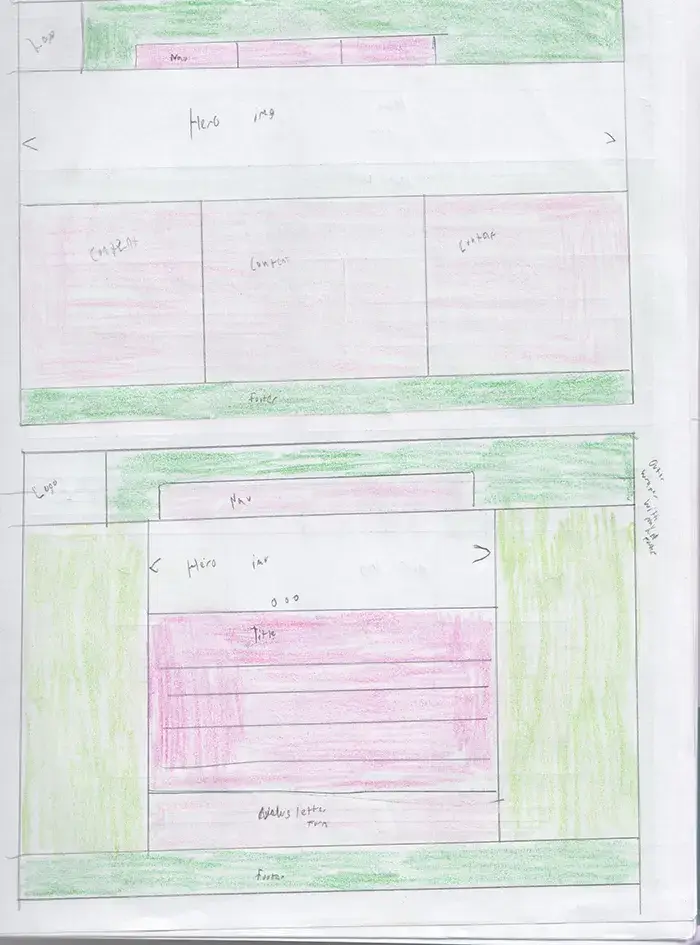 Logo
Nav
Hero img
Content
Content
Content
Footer
Logo
Nav
Hero img
Title
Newsletter
Form
Footer